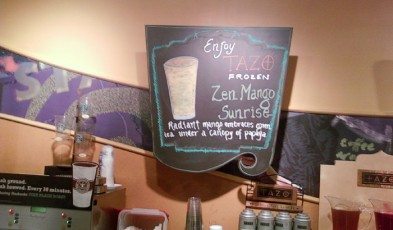 Enjoy
TAZO
FROZEN
Zen Mango
Sunrise
Radiant mango embraces green
tea under a canopy of papaya
TAZO
esh ground.
esh brewed. Every 30 minutes.